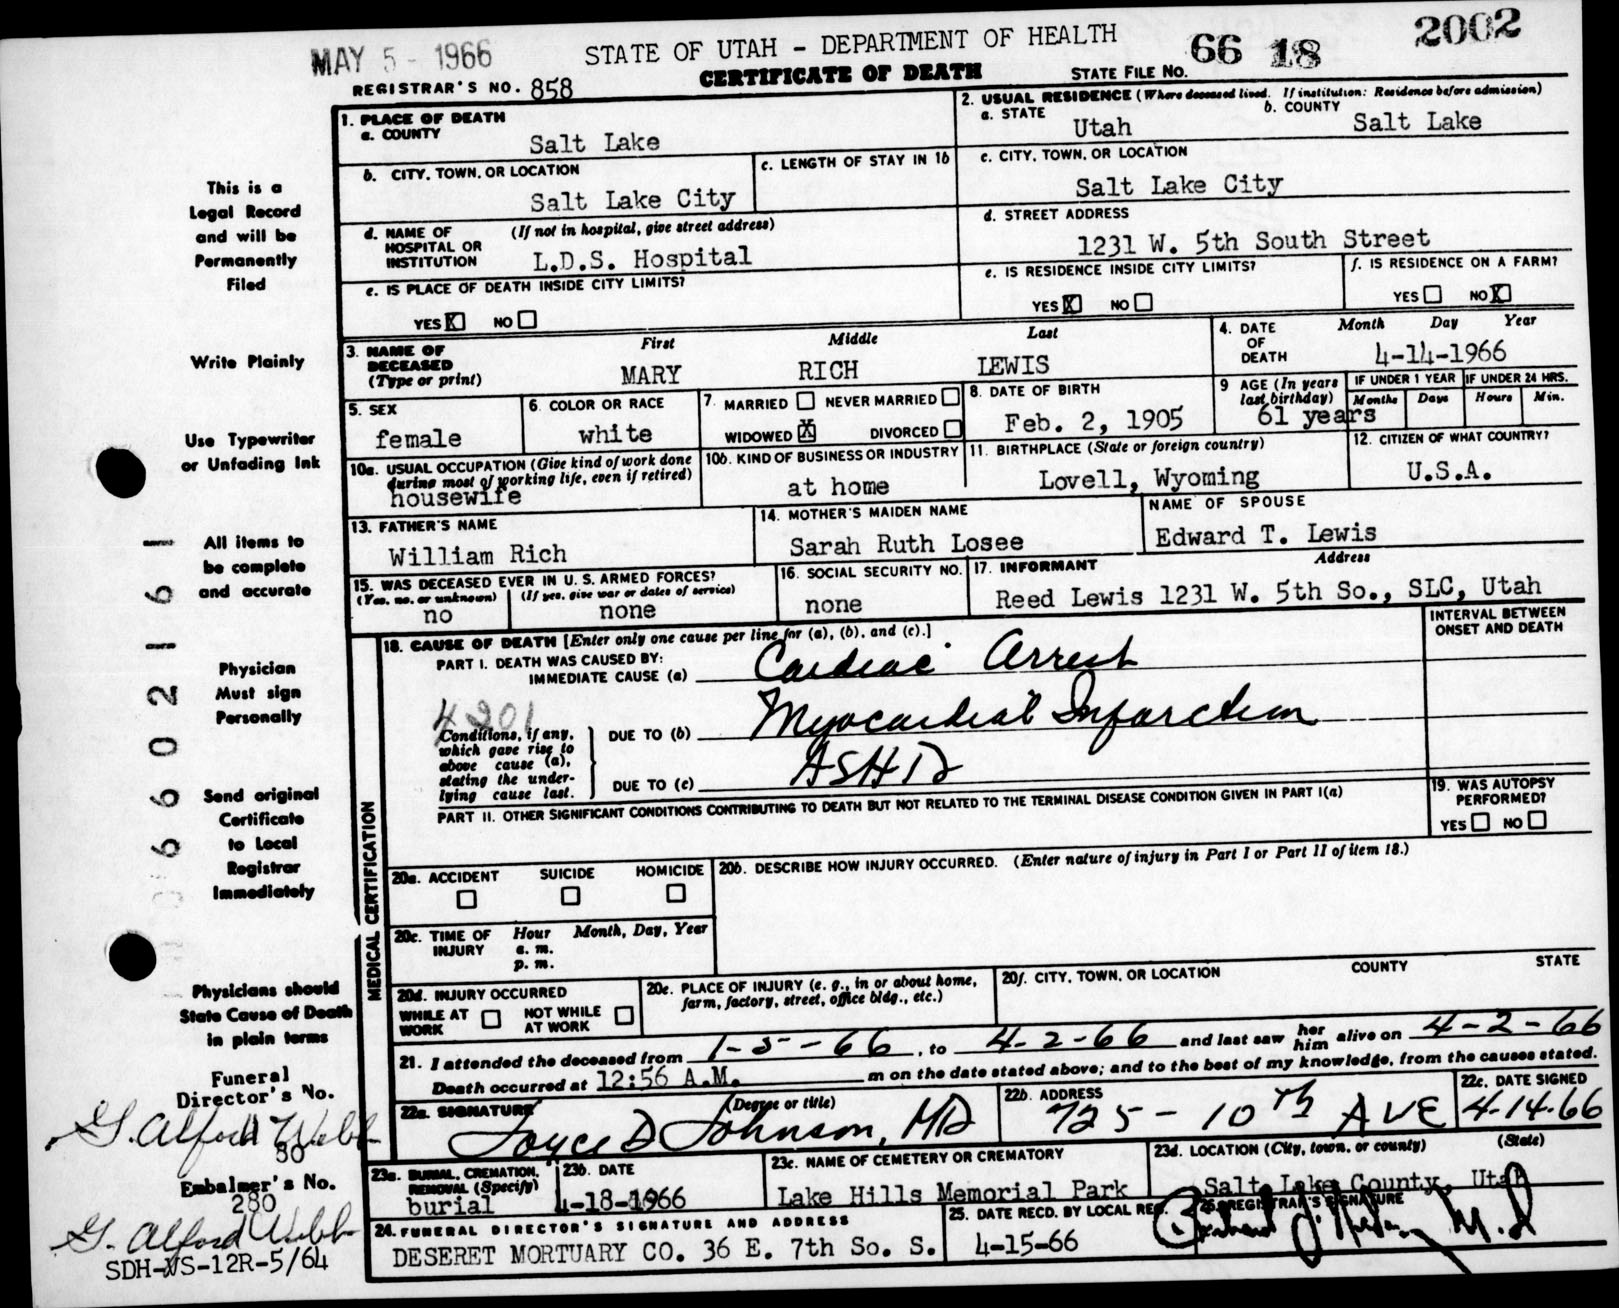 MAY 5 - 1966
STATE OF UTAH - DEPARTMENT OF HEALTH
66 18 2002
REGISTRAR'S NO. 858
CERTIFICATE OF DEATH
STATE FILE NO.
1. PLACE OF DEATH
a. COUNTY
Salt Lake
2. USUAL RESIDENCE (Where deceased lived. If institution: Residence before admission)
a. STATE
Utah
b. COUNTY
Salt Lake
b. CITY, TOWN, OR LOCATION
Salt Lake City
c. LENGTH OF STAY IN 1b
c. CITY, TOWN, OR LOCATION
Salt Lake City
d. NAME OF HOSPITAL OR INSTITUTION
(If not in hospital, give street address)
L.D.S. Hospital
d. STREET ADDRESS
1231 W. 5th South Street
e. IS PLACE OF DEATH INSIDE CITY LIMITS?
YES X NO
e. IS RESIDENCE INSIDE CITY LIMITS?
YES X NO
f. IS RESIDENCE ON A FARM?
YES NO X
3. NAME OF DECEASED
(Type or print)
First Middle Last
MARY RICH LEWIS
4. DATE OF DEATH
Month Day Year
4-14-1966
5. SEX
female
6. COLOR OR RACE
white
7. MARRIED NEVER MARRIED
WIDOWED X DIVORCED
8. DATE OF BIRTH
Feb. 2, 1905
9 AGE (In years last birthday)
61 years
IF UNDER 1 YEAR
Months Days
IF UNDER 24 HRS.
Hours Min.
10a. USUAL OCCUPATION (Give kind of work done during most of working life, even if retired)
housewife
10b. KIND OF BUSINESS OR INDUSTRY
at home
11. BIRTHPLACE (State or foreign country)
Lovell, Wyoming
12. CITIZEN OF WHAT COUNTRY?
U.S.A.
13. FATHER'S NAME
William Rich
14. MOTHER'S MAIDEN NAME
Sarah Ruth Losee
NAME OF SPOUSE
Edward T. Lewis
15. WAS DECEASED EVER IN U. S. ARMED FORCES?
(Yes, no, or unknown) (If yes, give war or dates of service)
no none
16. SOCIAL SECURITY NO.
none
17. INFORMANT Address
Reed Lewis 1231 W. 5th So., SLC, Utah
MEDICAL CERTIFICATION
18. CAUSE OF DEATH [Enter only one cause per line for (a), (b), and (c).]
INTERVAL BETWEEN ONSET AND DEATH
PART I. DEATH WAS CAUSED BY:
IMMEDIATE CAUSE (a) Cardiac Arrest
4201
Conditions, if any, which gave rise to above cause (a), stating the underlying cause last.
DUE TO (b) Myocardial Infarction
DUE TO (c) ASHD
PART II. OTHER SIGNIFICANT CONDITIONS CONTRIBUTING TO DEATH BUT NOT RELATED TO THE TERMINAL DISEASE CONDITION GIVEN IN PART I(a)
19. WAS AUTOPSY PERFORMED?
YES NO
20a. ACCIDENT SUICIDE HOMICIDE
20b. DESCRIBE HOW INJURY OCCURRED. (Enter nature of injury in Part I or Part II of item 18.)
20c. TIME OF INJURY
Hour Month, Day, Year
a. m.
p. m.
20d. INJURY OCCURRED
WHILE AT WORK NOT WHILE AT WORK
20e. PLACE OF INJURY (e. g., in or about home, farm, factory, street, office bldg., etc.)
20f. CITY, TOWN, OR LOCATION COUNTY STATE
21. I attended the deceased from 1-5-66, to 4-2-66 and last saw her him alive on 4-2-66
Death occurred at 12:56 A.M. m on the date stated above; and to the best of my knowledge, from the causes stated.
22a. SIGNATURE (Degree or title)
Joyce D Johnson, MD
22b. ADDRESS
725 - 10th AVE
22c. DATE SIGNED
4-14-66
23a. BURIAL, CREMATION, REMOVAL (Specify)
burial
23b. DATE
4-18-1966
23c. NAME OF CEMETERY OR CREMATORY
Lake Hills Memorial Park
23d. LOCATION (City, town, or county) (State)
Salt Lake County, Utah
24. FUNERAL DIRECTOR'S SIGNATURE AND ADDRESS
DESERET MORTUARY CO. 36 E. 7th So. S.
25. DATE RECD. BY LOCAL REG.
4-15-66
26. REGISTRAR'S SIGNATURE
M.D
This is a
Legal Record
and will be
Permanently
Filed
Write Plainly
Use Typewriter
or Unfading Ink
All items to
be complete
and accurate
Physician
Must sign
Personally
Send original
Certificate
to Local
Registrar
Immediately
Physicians should
State Cause of Death
in plain terms
Funeral
Director's No.
G. Alford Webb
80
Embalmer's No.
280
G. Alford Webb
SDH-VS-12R-5/64